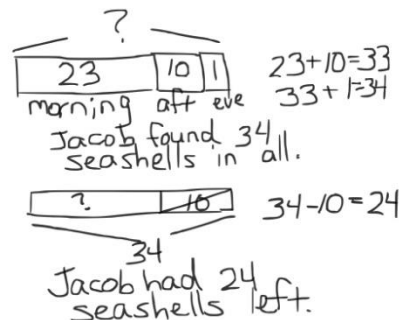 ?
23 10 1 23+10=33
morning aft eve 33+1=34
Jacob found 34
seashells in all.
? 10 34-10=24
34
Jacob had 24
seashells left.